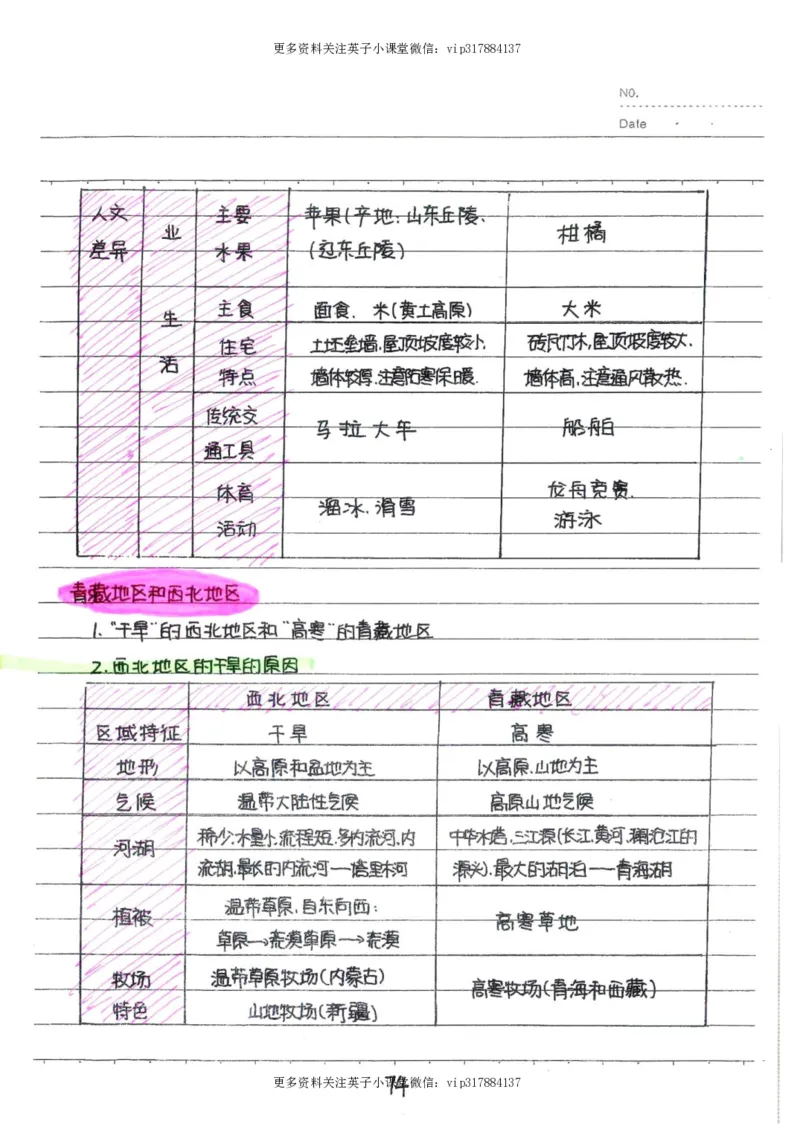 更多资料关注英子小课堂微信：vip317884137
NO.
Date
人文 主要 苹果(产地:山东丘陵、
差异 业 水果 (辽东丘陵) 柑橘
生 主食 面食、米(黄土高原) 大米
住宅 土坯垒墙,屋顶坡度较小, 砖瓦竹木,屋顶坡度较大,
活 特点 墙体较厚,注意防寒保暖. 墙体高,注意通风散热.
传统交 马拉大车 船舶
通工具
体育 溜冰、滑雪 龙舟竞赛、
活动 游泳
青藏地区和西北地区
1."干旱"的西北地区和"高寒"的青藏地区
2.西北地区的干旱的原因
西北地区 青藏地区
区域特征 干旱 高寒
地形 以高原和盆地为主 以高原、山地为主
气候 温带大陆性气候 高原山地气候
河湖 稀少,水量小,流程短,多内流河、内 中华水塔,三江源(长江、黄河、澜沧江的
流湖,最长的内流河——塔里木河 源头),最大的湖泊——青海湖
植被 温带草原,自东向西: 高寒草地
草原→荒漠草原→荒漠
牧场 温带草原牧场(内蒙古) 高寒牧场(青海和西藏)
特色 山地牧场(新疆)
74
更多资料关注英子小课堂微信：vip317884137